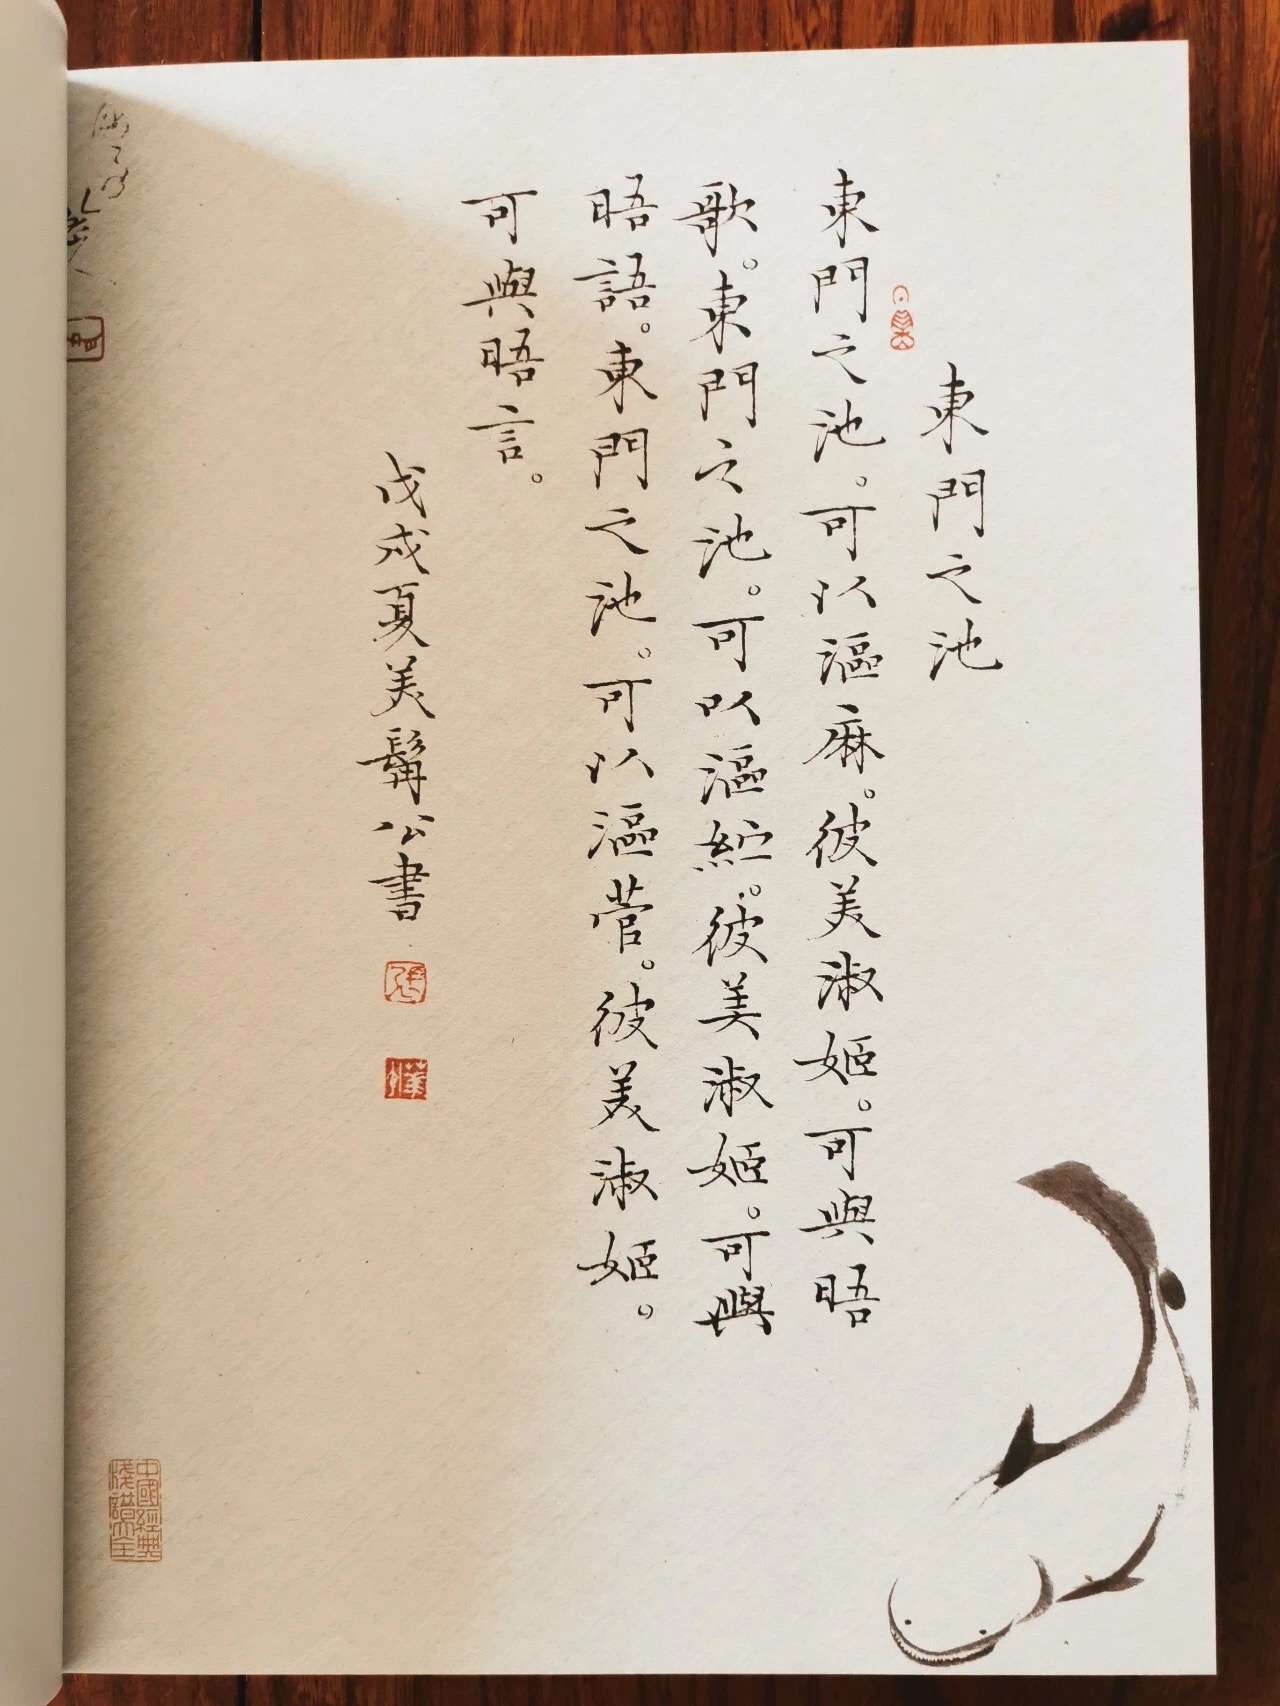 東門之池
東門之池。可以漚麻。彼美淑姬。可與晤
歌。東門之池。可以漚紵。彼美淑姬。可與
晤語。東門之池。可以漚菅。彼美淑姬。
可與晤言。
戊戌夏美髯公書
中國經典